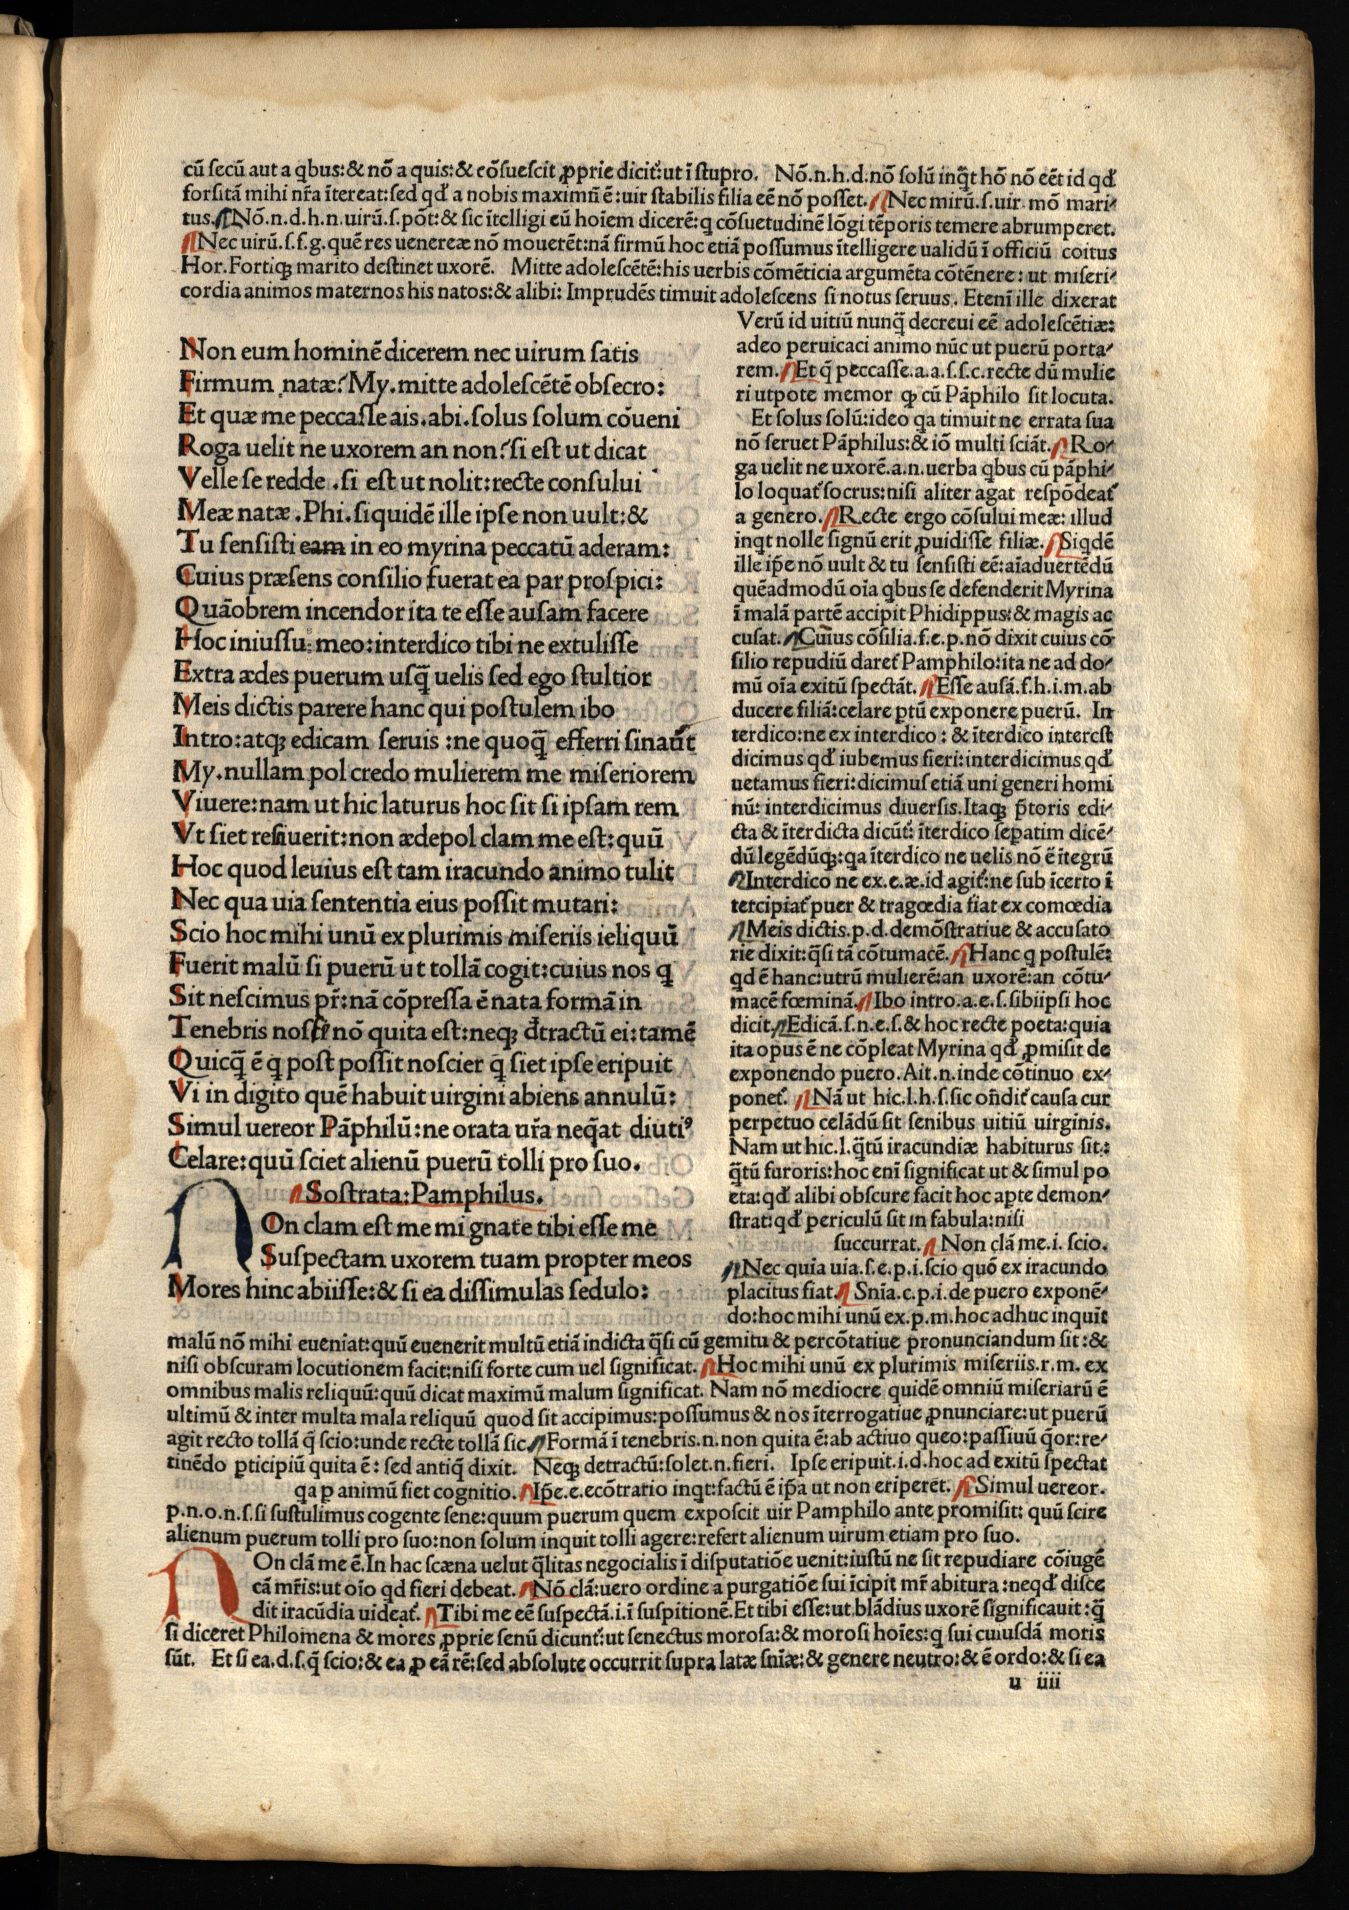 cū secū aut a qbus:& nō a quis:& cōsuescit ꝓprie dicit᷑:ut ī stupro. Nō.n.h.d.nō solū inq̄t hō nō eēt id qđ
forsitā mihi nr̄a īterreat:sed qđ a nobis maximū ē:uir stabilis filia eē nō posset. ¶Nec mirū.s.uir mō mari-
tus.¶Nō.n.d.h.n.uirū.s.pōt:& sic ītelligi eū hoīem dicerē:q cōsuetudinē lōgi tēporis temere abrumperet.
¶Nec uirū.s.f.g.quē res uenereæ nō mouerēt:nā firmū hoc etiā possumus ītelligere ualidū ī officiū coitus
Hor.Fortiqʒ marito destinet uxorē. Mitte adolescētē:his uerbis cōmēticia argumēta cōtēnere: ut miseri-
cordia animos maternos his natos:& alibi: Imprudēs timuit adolescens si notus seruus. Etenī ille dixerat
Non eum hominē dicerem nec uirum satis
Firmum natæ? My.mitte adolescētē obsecro:
Et quæ me peccasse ais.abi.solus solum cōueni
Roga uelit ne uxorem an non? si est ut dicat
Velle se redde .si est ut nolit:recte consului
Meæ natæ.Phi.siquidē ille ipse non uult:&
Tu sensisti eam in eo myrina peccatū aderam:
Cuius præsens consilio fuerat ea par prospici:
Quāobrem incendor ita te esse ausam facere
Hoc iniussu meo:interdico tibi ne extulisse
Extra ædes puerum usq̄ uelis sed ego stultior
Meis dictis parere hanc qui postulem ibo
Intro:atqʒ edicam seruis :ne quoq̄ efferri sinaūt
My.nullam pol credo mulierem me miseriorem
Viuere:nam ut hic laturus hoc sit si ipsam rem
Vt siet resiuerit:non ædepol clam me est:quū
Hoc quod leuius est tam iracundo animo tulit
Nec qua uia sententia eius possit mutari:
Scio hoc mihi unū ex plurimis miseriis ieliquū
Fuerit malū si puerū ut tollā cogit:cuius nos q
Sit nescimus pr̄:nā cōpressa ē nata formā in
Tenebris nosci nō quita est:neqʒ đtractū ei:tamē
Quicq̄ ē q̄ post possit noscier q̄ siet ipse eripuit
Vi in digito quē habuit uirgini abiens annulū:
Simul uereor Pāphilū:ne orata ur̄a neq̄at diuti⁹
Celare:quū sciet alienū puerū tolli pro suo.
¶Sostrata:Pamphilus.
NOn clam est me mi gnate tibi esse me
Suspectam uxorem tuam propter meos
Mores hinc abiisse:& si ea dissimulas sedulo:
Verū id uitiū nunq̄ decreui eē adolescētiæ:
adeo peruicaci animo nūc ut puerū porta-
rem.¶Et q̄ peccasse.a.a.s.s.c.recte dū mulie
ri utpote memor qđ cū Pāphilo sit locuta.
Et solus solū:ideo qa timuit ne errata sua
nō seruet Pāphilus:& iō multi sciāt.¶Ro-
ga uelit ne uxorē.a.n.uerba qbus cū pāphi-
lo loquat᷑ socrus:nisi aliter agat respōdeat᷑
a genero.¶Recte ergo cōsului meæ: illud
inqt nolle signū erit ꝓuidisse filiæ.¶Siqdē
ille ip̄e nō uult & tu sensisti eē:aīaduertēdū
quēadmodū oīa qbus se defenderit Myrina
ī malā partē accipit Phidippus:& magis ac
cusat.¶Cuius cōsilia.f.e.p.nō dixit cuius cō
silio repudiū daret᷑ Pamphilo:ita ne ad do-
mū oīa exitū spectāt.¶Esse ausā.f.h.i.m.ab
ducere filiā:celare ꝑtū exponere puerū. In
terdico:ne ex interdico : & īterdico interest
dicimus qđ iubemus fieri:interdicimus qđ
uetamus fieri:dicimus etiā uni generi homi
nū: interdicimus diuersis.Itaqʒ p̄toris edi-
cta & īterdicta dicūt᷑: īterdico seꝑatim dicē-
dū legēdūqʒ:qa īterdico ne uelis nō ē ītegrū
¶Interdico ne ex.e.æ.id agit᷑:ne sub īcerto ī
tercipiat᷑ puer & tragœdia fiat ex comœdia
¶Meis dictis.p.d.demōstratiue & accusato
rie dixit:q̄si tā cōtumacē.¶Hanc q postulē:
qđ ē hanc:utrū mulierē:an uxorē:an cōtu-
macē fœminā.¶Ibo intro.a.e.s.sibiipsi hoc
dicit.¶Edicā.s.n.e.s.& hoc recte poeta:quia
ita opus ē ne cōpleat Myrina qđ ꝓmisit de
exponendo puero.Ait.n.inde cōtinuo ex-
ponet᷑. ¶Nā ut hic.l.h.s.sic oñdit᷑ causa cur
perpetuo celādū sit senibus uitiū uirginis.
Nam ut hic.l.q̄tū iracundiæ habiturus sit:
q̄tū furoris:hoc enī significat ut & simul po
eta:qđ alibi obscure facit hoc apte demon-
strat:qđ periculū sit in fabula:nisi
succurrat.¶ Non clā me.i. scio.
¶Nec quia uia.s.e.p.i.scio quō ex iracundo
placitus fiat.¶ Snīa.c.p.i.de puero exponē-
do:hoc mihi unū ex.p.m.hoc adhuc inquit
malū nō mihi eueniat:quū euenerit multū etiā indicta q̄si cū gemitu & percōtatiue pronunciandum sit:&
nisi obscuram locutionem facit:nisi forte cum uel significat.¶Hoc mihi unū ex plurimis miseriis.r.m. ex
omnibus malis reliquū:quū dicat maximū malum significat. Nam nō mediocre quidē omniū miseriarū ē
ultimū & inter multa mala reliquū quod sit accipimus:possumus & nos īterrogatiue ꝓnunciare:ut puerū
agit recto tollā q̄ scio:unde recte tollā sic.¶Formā ī tenebris.n.non quita ē:ab actiuo queo:passiuū q̄or:re-
tinēdo ꝑticipiū quita ē: sed antiq̄ dixit. Neqʒ detractū:solet.n.fieri. Ipse eripuit.i.d.hoc ad exitū spectat
qa ꝑ animū fiet cognitio.¶Ip̄e.e.ecōtratio inqt:factū ē ip̄a ut non eriperēt.¶Simul uereor.
p.n.o.n.s.si sustulimus cogente sene:quum puerum quem exposcit uir Pamphilo ante promisit: quū scire
alienum puerum tolli pro suo:non solum inquit tolli agere:refert alienum uirum etiam pro suo.
NOn clā me ē.In hac scæna uelut q̄litas negocialis ī disputatiōe uenit:iustū ne sit repudiare cōiugē
cā mr̄is:ut oīo qđ fieri debeat.¶Nō clā:uero ordine a purgatiōe sui īcipit mr̄ abitura :neqđ disce
dit iracūdia uideat᷑.¶Tibi me eē suspectā.i.ī suspitionē.Et tibi esse:ut blādius uxorē significauit:q̄
si diceret Philomena & mores ꝓprie senū dicunt᷑:ut senectus morosa:& morosi hoīes:q sui cuiusdā moris
sūt. Et si ea.d.s.q̄ scio:& ea ꝓ eā rē:sed absolute occurrit supra latæ snīæ:& genere neutro:& ē ordo:& si ea
u iiii